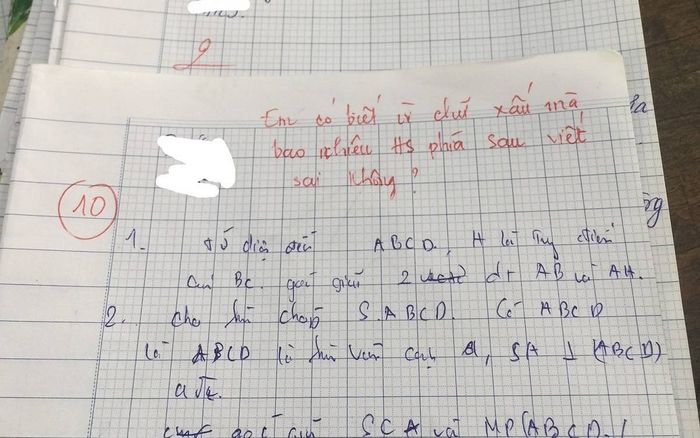 2
Em có biết vì chữ xấu mà
bao nhiêu HS phía sau viết
sai không?
10
1. tứ diện đều ABCD, H là trung điểm
BC. góc giữa 2 đt AB và AH.
2. cho hình chóp S.ABCD. Có ABCD
là ABCD là hình vuông cạnh a, SA ⊥ (ABCD)
a√
góc giữa SCA và MP(ABCD)